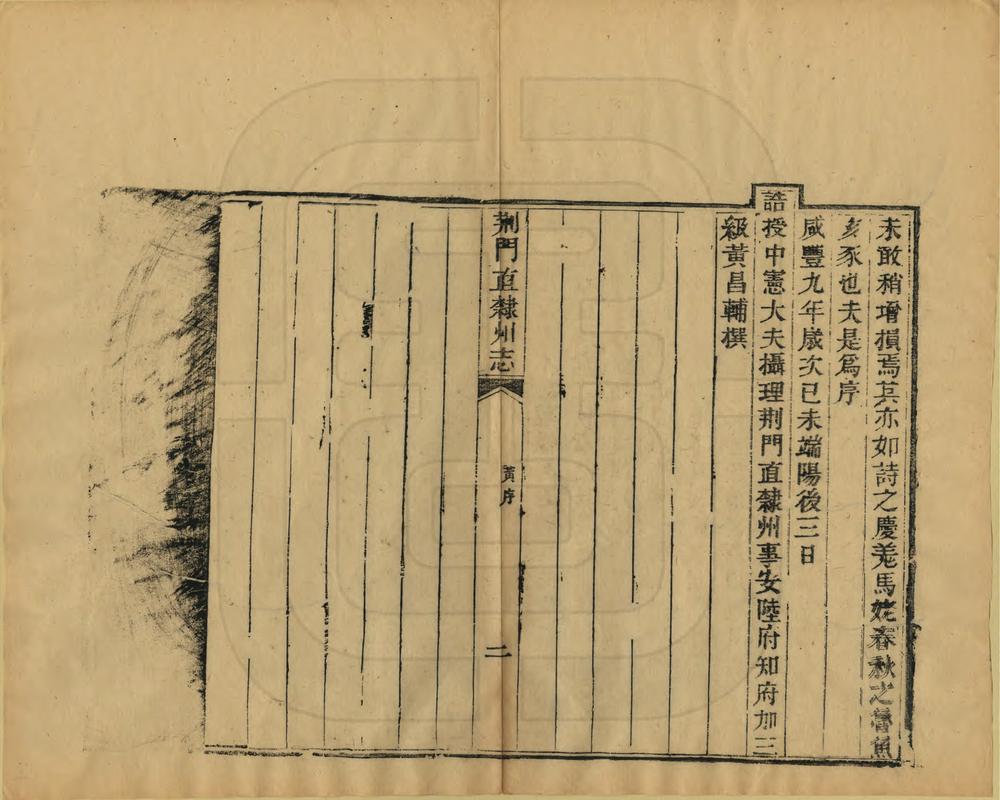 未敢稍增損焉其亦如詩之慶羗馬姥春秋之魯魚
亥豕也夫是爲序
咸豐九年歲次已未端陽後三日
誥授中憲大夫攝理荆門直隸州事安陸府知府加三
級黃昌輔撰
荆門直隸州志
黃序
二